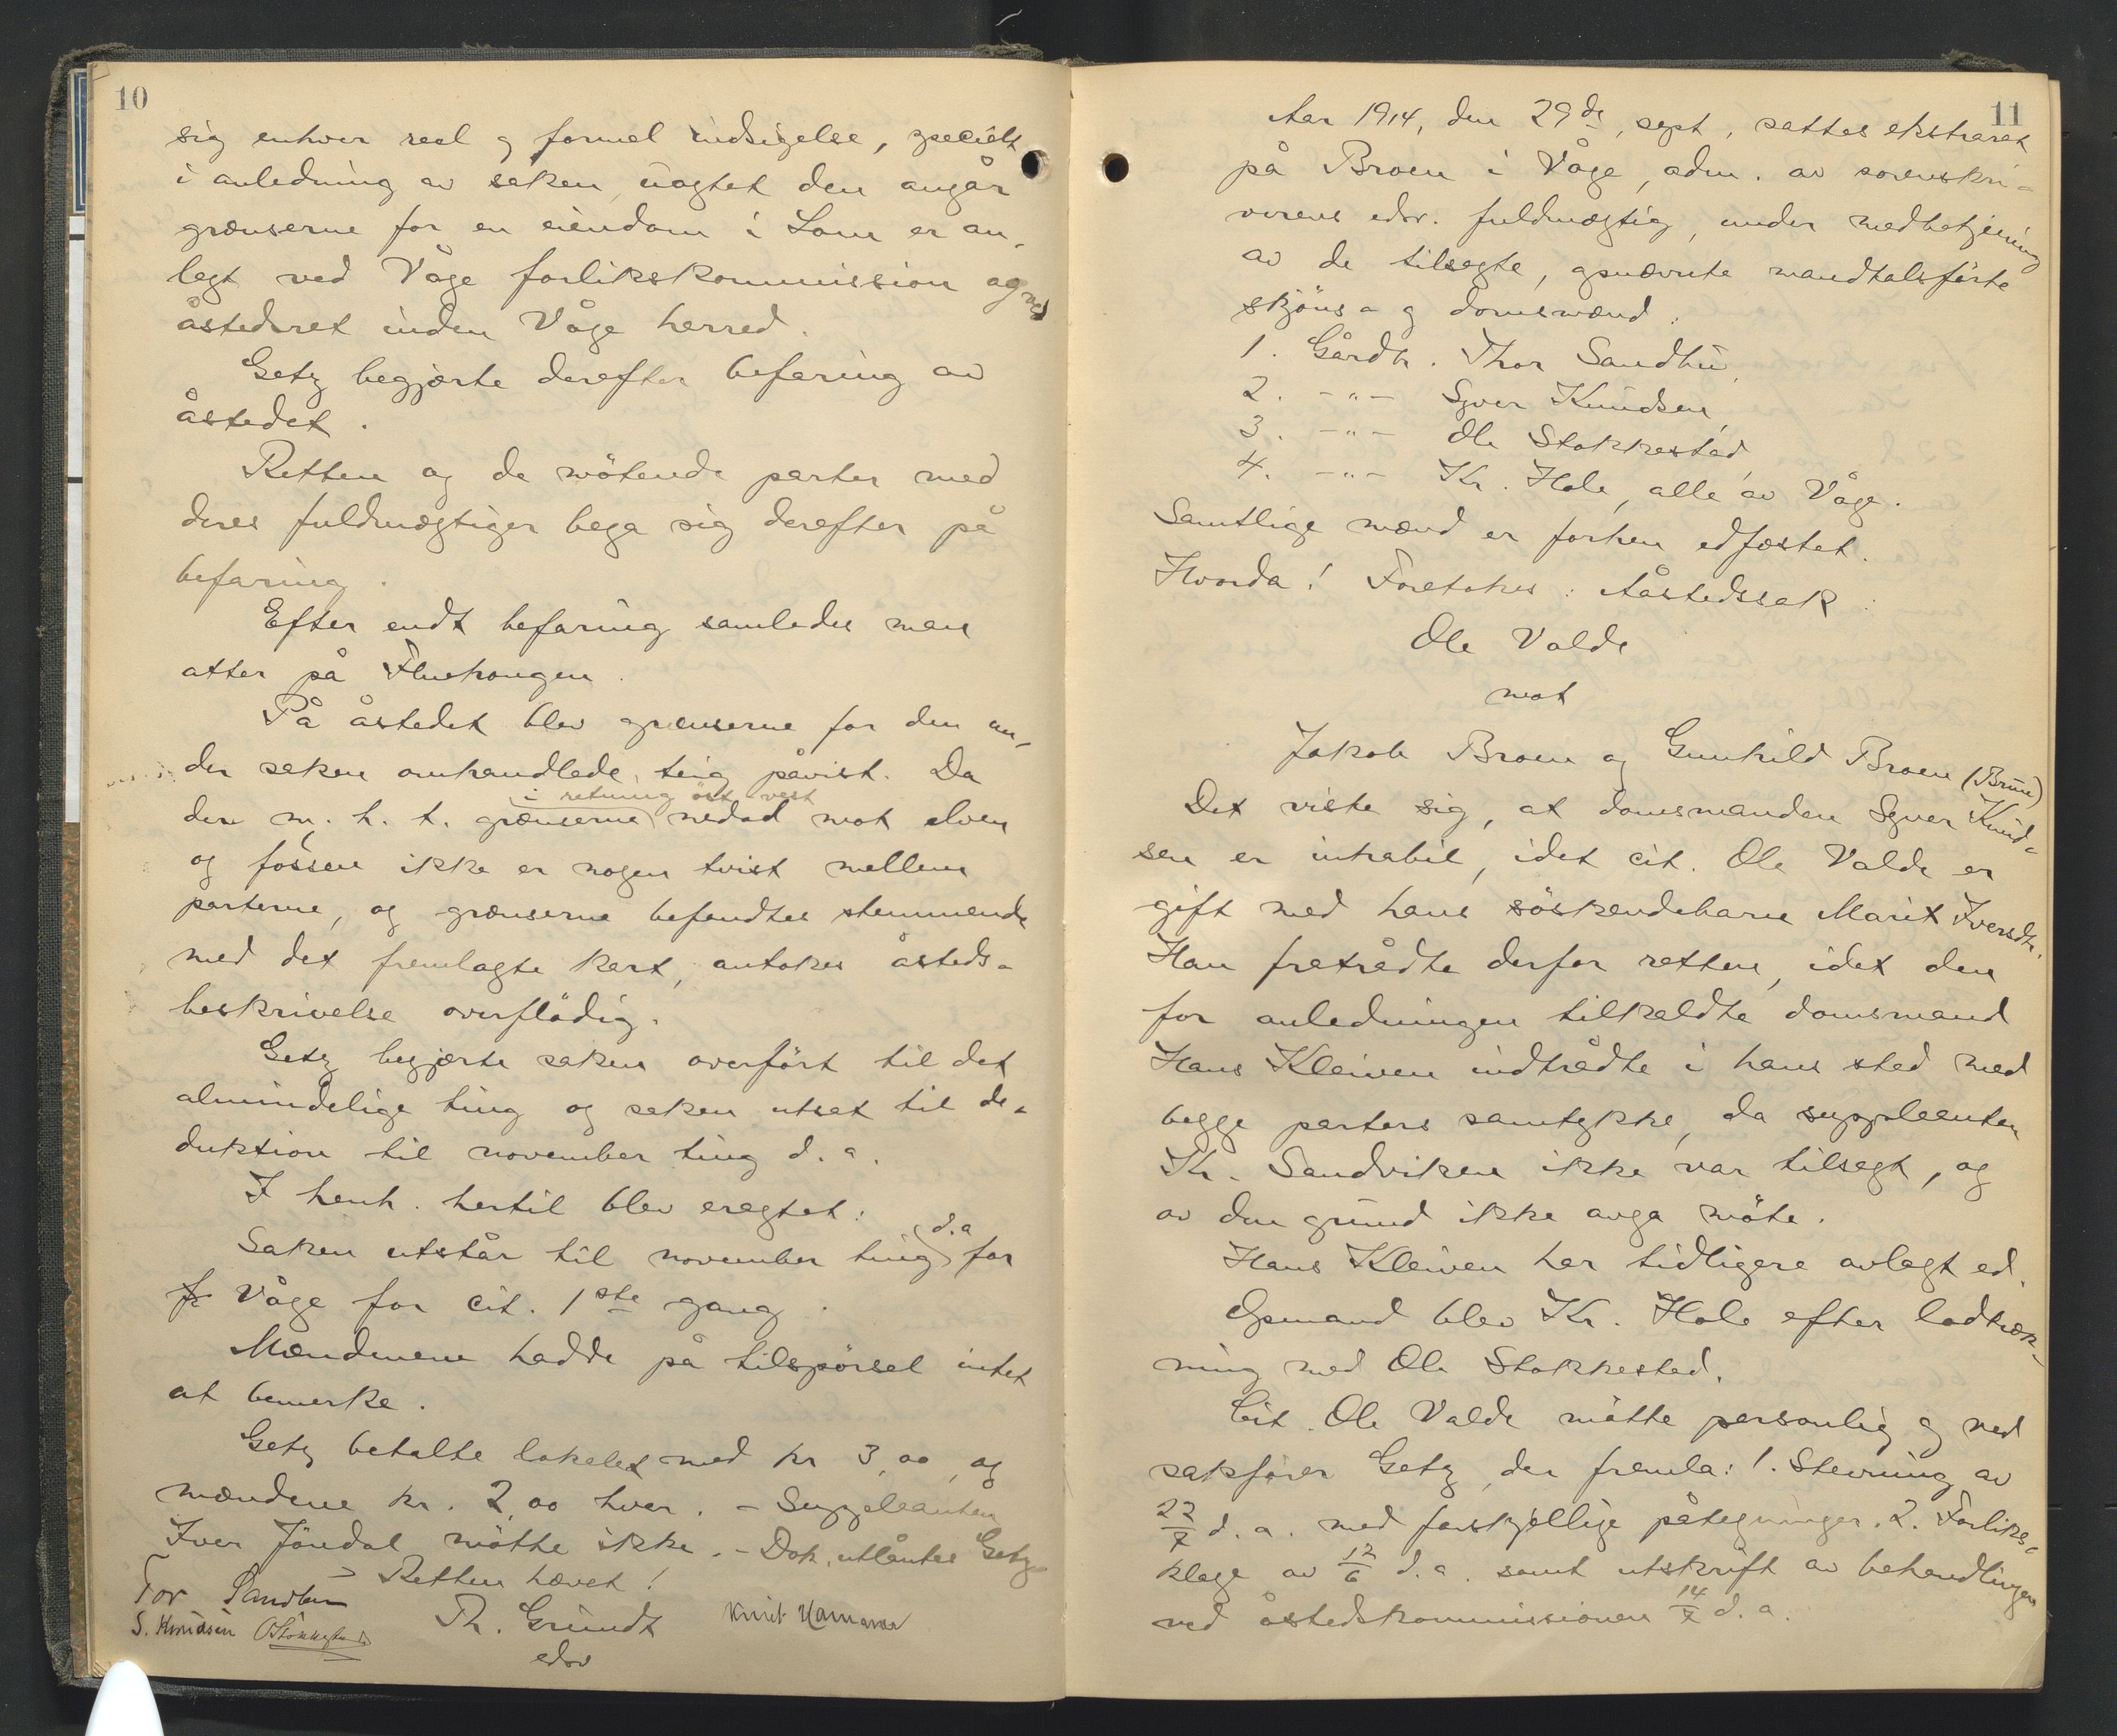 10
sig enhver reel og formel indsigelse, specielt
i anledning av saken, uagtet den angår
grænserne for en eiendom i Lom er an-
lagt ved Våge forlikskommission og ved
åstedsret inden Våge herred.
Getz begjærte derefter befaring av
åstedet.
Retten og de møtende parter med
deres fuldmægtiger bega sig derefter på
befaring.
Efter endt befaring samledes man
atter på
På åstedet blev grænserne for den un-
der saken omhandlede teig påvist. Da
i retning øst-vest
der m. h. t. grænserne nedad mot elven
og fossen ikke er nogen tvist mellem
parterne, og grænserne befandtes stemmende
med det fremlagte kart, antokes åsteds-
beskrivelse overflødig.
Getz begjærte saken overført til det
almindelige ting og saken utsat til de-
duktion til november ting d. a.
I henh. hertil blev eragtet:
d. a
Saken utstår til november ting for
fr Våge for cit. 1ste gang.
Mændenene hadde på tilspørsel intet
at bemerke.
Getz betalte lokalet med kr 3,00, og
mændene kr. 2,00 hver. - Suppleanten
Iver Jöndal møtte ikke. - Dok. utlåntes Getz
Retten hævet!
Tor Sandbu
S. Knudsen O Stokkestad Th. Grundt
edsv
11
Aar 1914, den 29de sept, sattes ekstraret
på Broen i Våge, adm. av sorenskri-
verens edsv. fuldmægtig, under medbetjening
av de tilsagte, opnævnte mandtalsførte
skjöns- og domsmænd:
1. Gårdbr. Thor Sandbu,
2. -"- Syver Knudsen,
3. -"- Ole Stokkestad,
4. -"- Kr. Hole, alle av Våge.
Samtlige mænd er forhen edfæstet.
Hvorda! Foretokes: Aåstedssak:
Ole Valde
mot
Jakob Broen og Gunhild Broen (Brun)
Det viste sig, at domsmanden Syver Knud-
sen er inhabil, idet cit. Ole Valde er
gift med hans söskendebarn Marit Iversdtr.
Han fratrådte derfor retten, idet den
for anledningen tilkaldte domsmand
Hans Kleiven indtrådte i hans sted med
begge parters samtykke, da suppleanten
Kr. Sandviken ikke var tilsagt, og
av den grund ikke avga møte.
Hans Kleiven har tidligere avlagt ed.
Opmand blev Kr. Hole efter lodtræk-
ning med Ole Stokkestad.
Cit. Ole Valde møtte personlig og ved
sakfører Getz, der fremla: 1. Stevning av
22/7 d. a. med forskjellige påtegninger. 2. Forliks-
klage av 12/6 d. a. samt utskrift av behandlingen
ved åstedskommissionen 14/7 d. a.